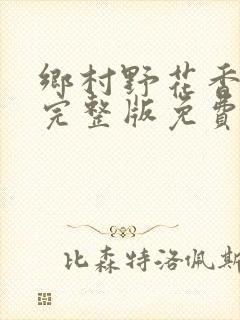 鄉村野花香
完整版免費
比森特洛佩斯